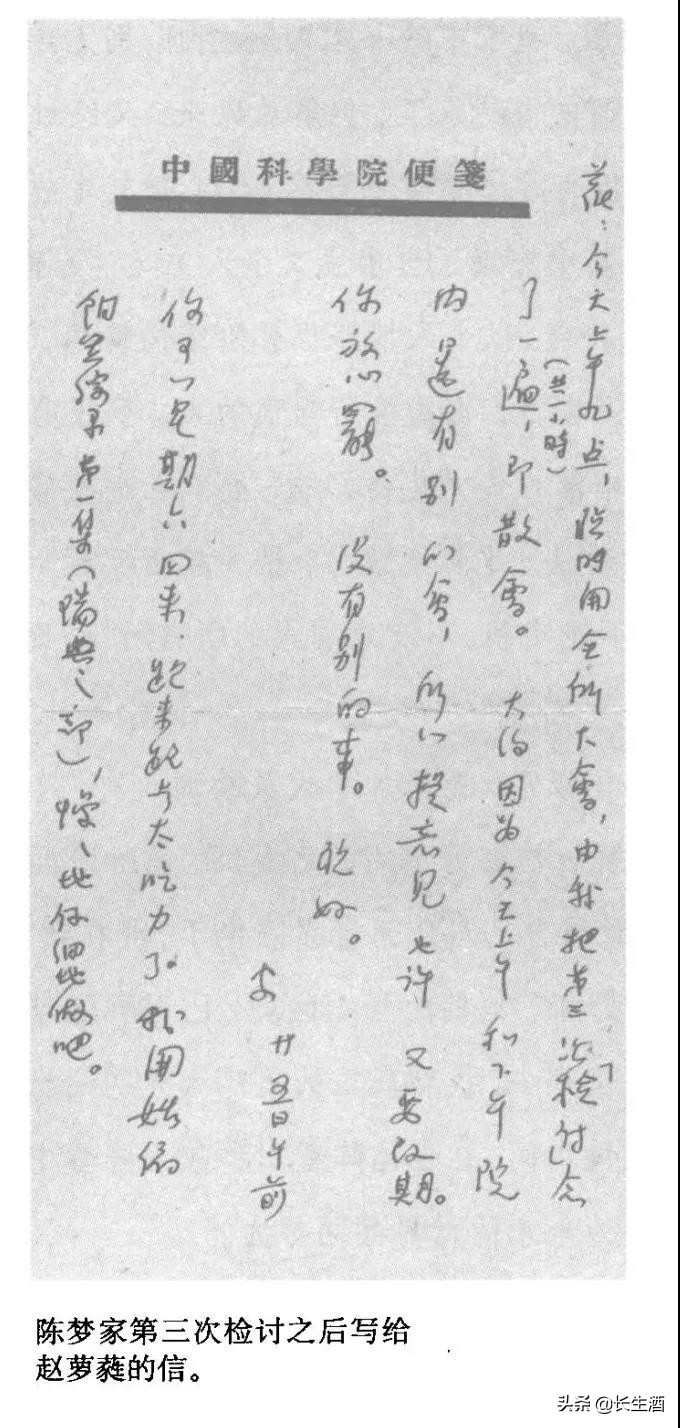 中國科學院便箋
蕤：今天上午九点，临时開全所大會，由我把第三次「检讨」念
(共一小時)
了一遍，即散會。大约因为今天上午和下午院
内還有别的會，所以提意见也许又要改期。
你放心罷。没有别的事。祝好。
家 廿五日午前
你可以星期六回来，跑来跑去太吃力了。我開始编
铜器综录第一集(瑞典之部)，慢、地仔细地做吧。
陈梦家第三次检讨之后写给
赵萝蕤的信。
头条@长生酒